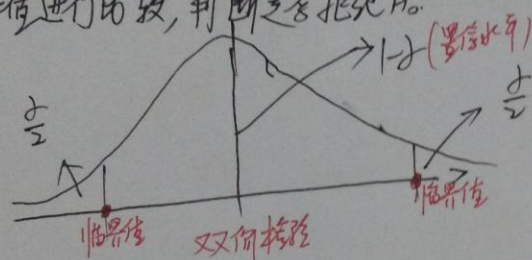 值进行比较,判断是否拒绝H₀.
1-α(置信水平)
α/2
α/2
临界值
双向检验
临界值